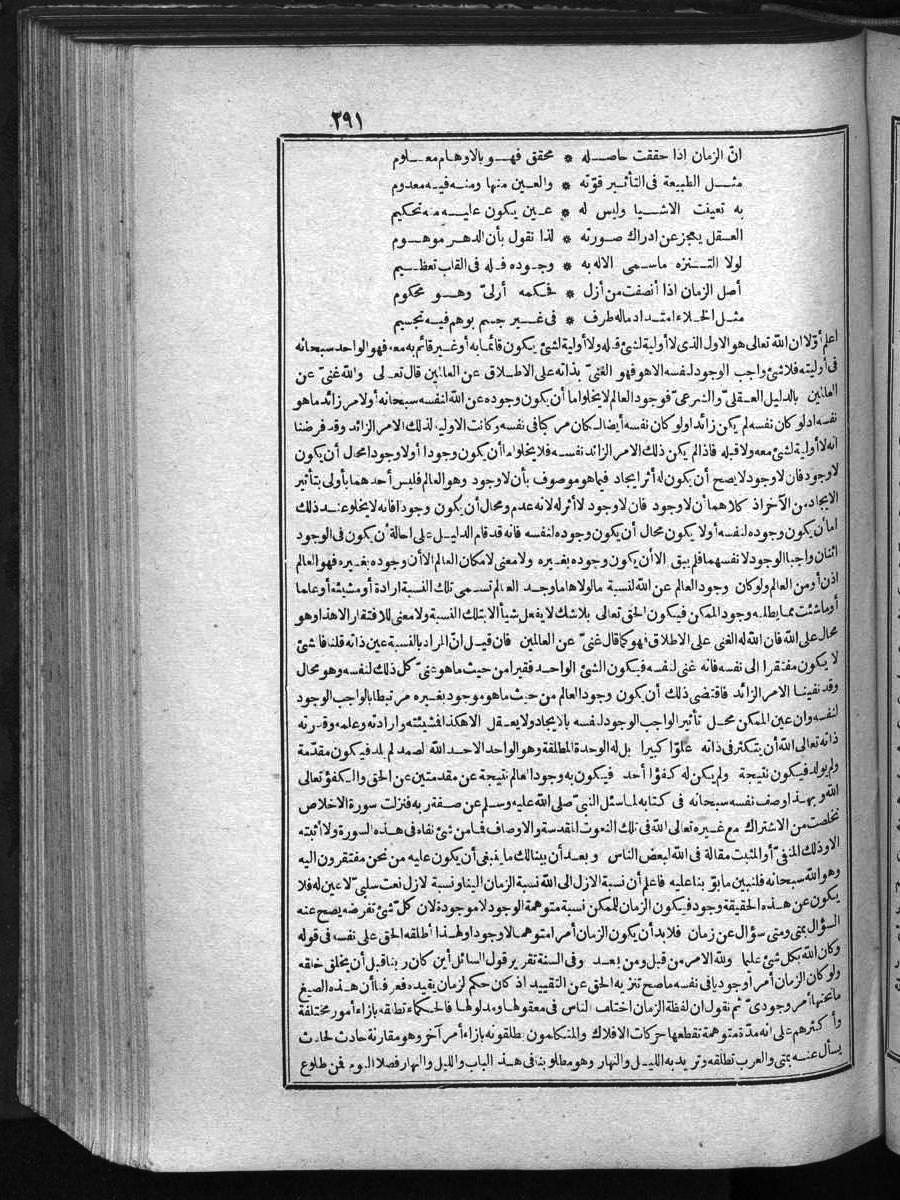 ٢٩١
انّ الزمان اذا حققت حاصله * محقق فهو بالاوهام معلوم
مثل الطبيعة فى التأثير قوّته * والعين منها ومنه فيه معدوم
به تعينت الاشيا وليس له * عين يكون عليه منه تحكيم
العقل يعجز عن ادراك صورته * لذا نقول بأن الدهر موهوم
لولا التنزه ماسمى الاله به * وجوده فله فى القلب تعظيم
أصل الزمان اذا أنصفت من أزل * فحكمه أزلىّ وهو محكوم
مثل الخلاء امتداد ماله طرف * فى غير جسم بوهم فيه تجسيم
اعلم أوّلا ان الله تعالى هو الاول الذى لا أولية لشئ قبله ولا أولية لشئ يكون قائما به أو غير قائم به معه فهو الواحد سبحانه
فى أوليته فلا شئ واجب الوجود لنفسه الا هو فهو الغنىّ بذاته على الاطلاق عن العالمين قال تعالى والله غنىّ عن
العالمين بالدليل العقلىّ والشرعىّ فوجود العالم لا يخلو اما أن يكون وجوده عن الله لنفسه سبحانه أو لامر زائد ما هو
نفسه اذ لو كان نفسه لم يكن زائدا ولو كان نفسه أيضا لكان مركبا فى نفسه وكانت الاولية لذلك الامر الزائد وقد فرضنا
انه لا أولية لشئ معه ولا قبله فاذا لم يكن ذلك الامر الزائد نفسه فلا يخلو اما أن يكون وجودا أو لا وجودا محال أن يكون
لا وجود فان لا وجود لا يصح أن يكون له أثر ايجاد فيما هو موصوف بأن لا وجود وهو العالم فليس أحدهما بأولى بتأثير
الايجاد من الآخر اذ كلاهما أن لا وجود فان لا وجود لا أثر له لانه عدم ومحال أن يكون وجودا فانه لا يخلو عند ذلك
اما أن يكون وجوده لنفسه أو لا يكون محال أن يكون وجوده لنفسه فانه قد قام الدليل على احالة أن يكون فى الوجود
اثنان واجبا الوجود لانفسهما فلم يبق الا أن يكون وجوده بغيره ولا معنى لامكان العالم الا أن وجوده بغيره فهو العالم
اذن أو من العالم ولو كان وجود العالم عن الله لنسبة ما لولاها ما وجد العالم تسمى تلك النسبة ارادة أو مشيئة أو علما
أو ما شئت مما يطلبه وجود الممكن فيكون الحق تعالى بلا شك لا يفعل شيأ الا بتلك النسبة ولا معنى للافتقار الا هذا وهو
محال على الله فان الله له الغنى على الاطلاق فهو كما قال غنىّ عن العالمين فان قيل انّ المراد بالنسبة عين ذاته قلنا فالشئ
لا يكون مفتقرا الى نفسه فانه غنى لنفسه فيكون الشئ الواحد فقيرا من حيث ما هو غنىّ كل ذلك لنفسه وهو محال
وقد نفينا الامر الزائد فاقتضى ذلك أن يكون وجود العالم من حيث ما هو موجود بغيره مرتبطا بالواجب الوجود
لنفسه وان عين الممكن محل تأثير الواجب الوجود لنفسه بالايجاد ولا يعقل الا هكذا فمشيئته وارادته وعلمه وقدرته
ذاته تعالى الله أن يتكثر فى ذاته علوّا كبيرا بل له الوحدة المطلقة وهو الواحد الاحد الله الصمد لم يلد فيكون مقدّمة
ولم يولد فيكون نتيجة ولم يكن له كفوا أحد فيكون به وجود العالم نتيجة عن مقدمتين عن الحق والكفؤ تعالى
الله وبهذا وصف نفسه سبحانه فى كتابه لما سئل النبىّ صلى الله عليه وسلم عن صفة ربه فنزلت سورة الاخلاص
تخلصت من الاشتراك مع غيره تعالى الله فى تلك النعوت المقدسة والاوصاف فما من شئ نفاه فى هذه السورة ولا أثبته
الا وذلك المنفىّ أو المثبت مقالة فى الله لبعض الناس وبعد أن بينا لك ما ينبغى أن يكون عليه من نحن مفتقرون اليه
وهو الله سبحانه فلنبين ما بوّبنا عليه فاعلم أن نسبة الازل الى الله نسبة الزمان الينا ونسبة الازل نعت سلبىّ لا عين له فلا
يكون عن هذه الحقيقة وجود فيكون الزمان للممكن نسبة متوهمة الوجود لا موجودة لان كل شئ تفرضه يصح عنه
السؤال بمتى ومتى سؤال عن زمان فلا بد أن يكون الزمان أمرا متوهما لا وجوديا ولهذا أطلقه الحق على نفسه فى قوله
وكان الله بكل شئ عليما ولله الامر من قبل ومن بعد وفى السنة تقرير قول السائل أين كان ربنا قبل أن يخلق خلقه
ولو كان الزمان أمرا وجوديا فى نفسه ما صح تنزيه الحق عن التقييد اذ كان حكم الزمان يقيده فعرفنا أن هذه الصيغ
ما تحتها أمر وجودىّ ثم نقول ان لفظة الزمان اختلف الناس فى معقولها ومدلولها فالحكماء تطلقه بازاء أمور مختلفة
وأكثرهم على انه مدّة متوهمة تقطعها حركات الافلاك والمتكلمون يطلقونه بازاء أمر آخر وهو مقارنة حادث لحادث
يسأل عنه بمتى والعرب تطلقه وتريد به الليل والنهار وهو مطلوبنا فى هذا الباب والليل والنهار فصلا اليوم فمن طلوع